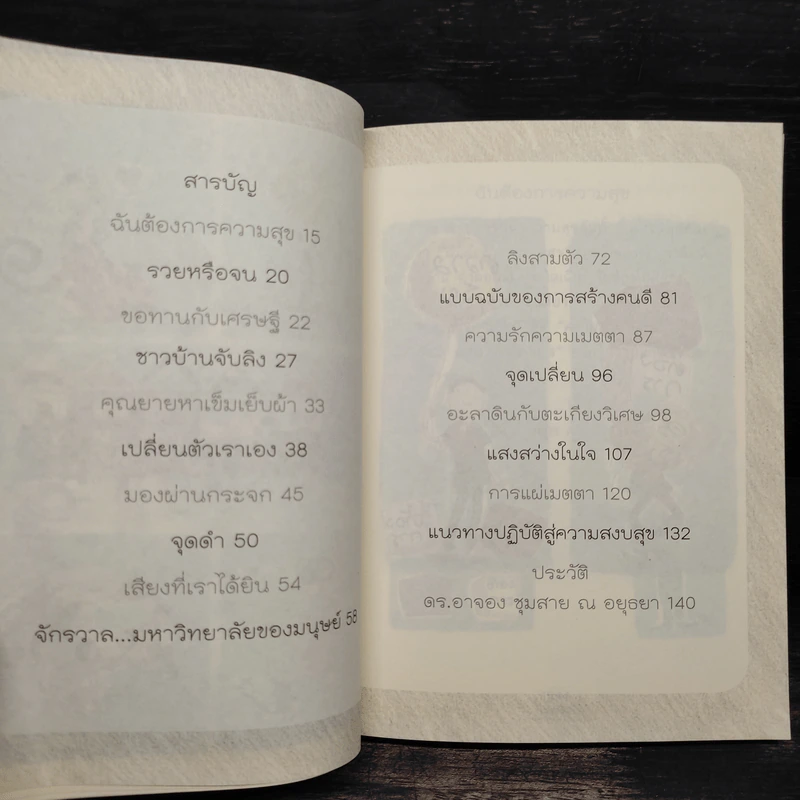 สารบัญ
ฉันต้องการความสุข 15
รวยหรือจน 20
ขอทานกับเศรษฐี 22
ชาวบ้านจับลิง 27
คุณยายหาเข็มเย็บผ้า 33
เปลี่ยนตัวเราเอง 38
มองผ่านกระจก 45
จุดดำ 50
เสียงที่เราได้ยิน 54
จักรวาล...มหาวิทยาลัยของมนุษย์ 58
ลิงสามตัว 72
แบบฉบับของการสร้างคนดี 81
ความรักความเมตตา 87
จุดเปลี่ยน 96
อะลาดินกับตะเกียงวิเศษ 98
แสงสว่างในใจ 107
การแผ่เมตตา 120
แนวทางปฏิบัติสู่ความสงบสุข 132
ประวัติ
ดร.อาจอง ชุมสาย ณ อยุธยา 140